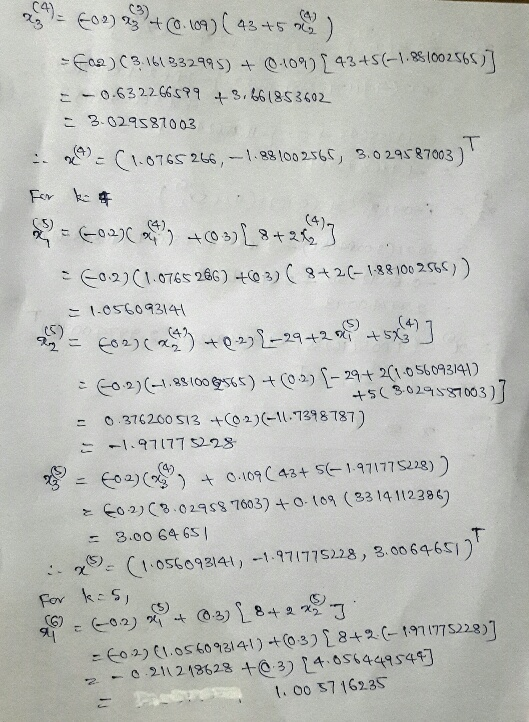 x₃⁽⁴⁾ = (-0.2) x₃⁽³⁾ + (0.109) ( 43 + 5 x₂⁽⁴⁾ )
= (-0.2) (3.161332995) + (0.109) [ 43 + 5(-1.881002565) ]
= - 0.632266599 + 3.661853602
= 3.029587003
∴ x⁽⁴⁾ = (1.0765266, -1.881002565, 3.029587003)ᵀ
For k = 4
x₁⁽⁵⁾ = (-0.2) ( x₁⁽⁴⁾ ) + (0.3) [ 8 + 2x₂⁽⁴⁾ ]
= (-0.2) (1.0765266) + (0.3) ( 8 + 2(-1.881002565) )
= 1.056093141
x₂⁽⁵⁾ = (-0.2) ( x₂⁽⁴⁾ ) + (0.2) [ -29 + 2 x₁⁽⁵⁾ + 5x₃⁽⁴⁾ ]
= (-0.2) (-1.881002565) + (0.2) [ -29 + 2(1.056093141)
+ 5( 3.029587003) ]
= 0.376200513 + (0.2) (-11.7398787)
= -1.971775228
x₃⁽⁵⁾ = (-0.2) (x₃⁽⁴⁾) + 0.109 ( 43 + 5(-1.971775228) )
= (-0.2) (3.029587003) + 0.109 ( 33.14112386)
= 3.0064651
∴ x⁽⁵⁾ = (1.056093141, -1.971775228, 3.0064651)ᵀ
For k = 5,
x₁⁽⁶⁾ = (-0.2) x₁⁽⁵⁾ + (0.3) [ 8 + 2 x₂⁽⁵⁾ ]
= (-0.2) (1.056093141) + (0.3) [ 8 + 2 (-1.971775228) ]
= - 0.211218628 + (0.3) [ 4.056449544 ]
= 1.005716235